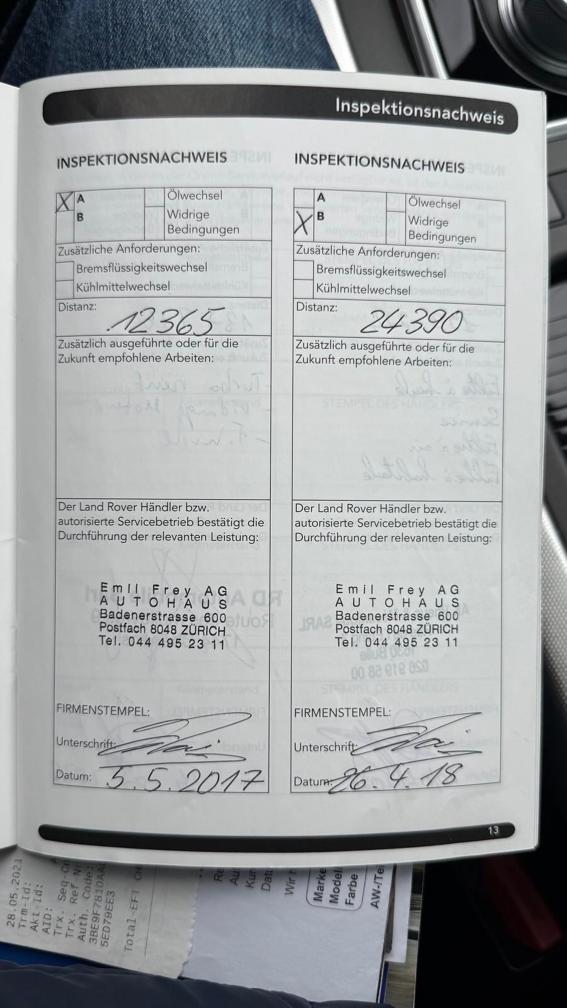 Inspektionsnachweis
INSPEKTIONSNACHWEIS
X A
B
Ölwechsel
Widrige
Bedingungen
Zusätzliche Anforderungen:
Bremsflüssigkeitswechsel
Kühlmittelwechsel
Distanz:
12365
Zusätzlich ausgeführte oder für die
Zukunft empfohlene Arbeiten:
Der Land Rover Händler bzw.
autorisierte Servicebetrieb bestätigt die
Durchführung der relevanten Leistung:
Emil Frey AG
AUTOHAUS
Badenerstrasse 600
Postfach 8048 ZÜRICH
Tel. 044 495 23 11
FIRMENSTEMPEL:
Unterschrift:
Datum: 5.5.2017
INSPEKTIONSNACHWEIS
A
X B
Ölwechsel
Widrige
Bedingungen
Zusätzliche Anforderungen:
Bremsflüssigkeitswechsel
Kühlmittelwechsel
Distanz:
24390
Zusätzlich ausgeführte oder für die
Zukunft empfohlene Arbeiten:
Der Land Rover Händler bzw.
autorisierte Servicebetrieb bestätigt die
Durchführung der relevanten Leistung:
Emil Frey AG
AUTOHAUS
Badenerstrasse 600
Postfach 8048 ZÜRICH
Tel. 044 495 23 11
FIRMENSTEMPEL:
Unterschrift:
Datum: 26.4.18
13
28.05.2021
Trm-Id:
Akt-Id:
AID:
Trx. Seq-C
Trx. Ref-N
Auth. Code:
5ED79EE3
Total-EFT
Wir
Marke
Model
Farbe
AW-/Te